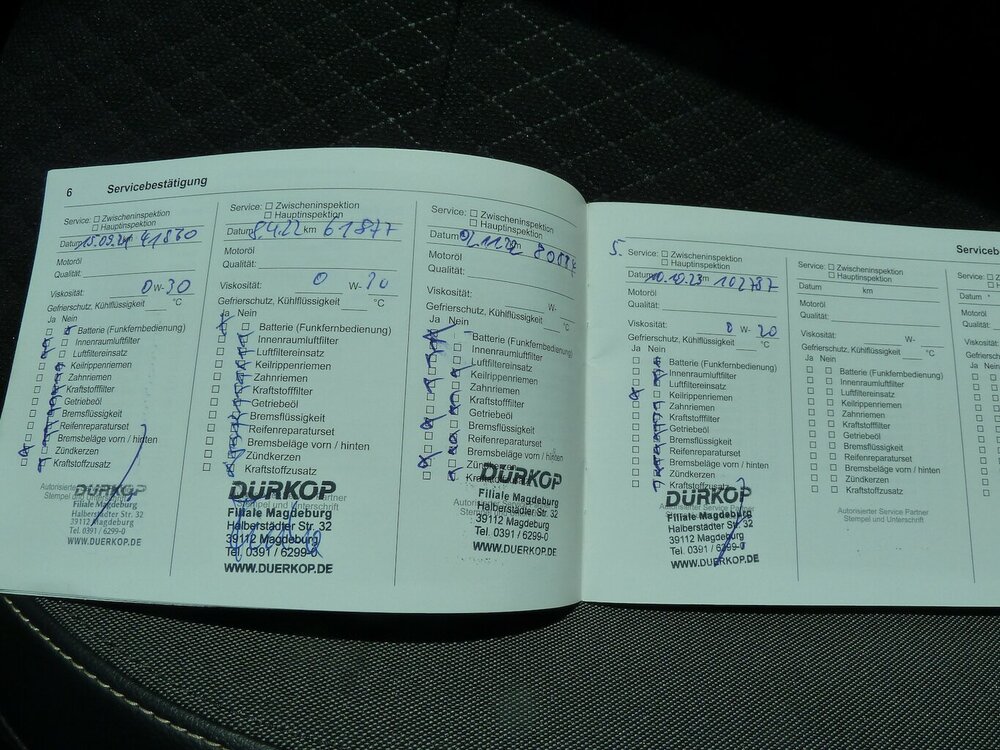 6 Servicebestätigung
Service: ☐ Zwischeninspektion
☐ Hauptinspektion
Datum 15.09.21 41860
Motoröl
Qualität:
Viskosität: 0 W- 30
Gefrierschutz, Kühlflüssigkeit °C
Ja Nein
Batterie (Funkfernbedienung)
Innenraumluftfilter
Luftfiltereinsatz
Keilrippenriemen
Zahnriemen
Kraftstofffilter
Getriebeöl
Bremsflüssigkeit
Reifenreparaturset
Bremsbeläge vorn / hinten
Zündkerzen
Kraftstoffzusatz
DÜRKOP
Filiale Magdeburg
Halberstädter Str. 32
39112 Magdeburg
Tel. 0391 / 6299-0
WWW.DUERKOP.DE
Service: ☐ Zwischeninspektion
☐ Hauptinspektion
Datum 8.4.22 km 61877
Motoröl
Qualität:
Viskosität: 0 W- 30
Gefrierschutz, Kühlflüssigkeit °C
Ja Nein
Batterie (Funkfernbedienung)
Innenraumluftfilter
Luftfiltereinsatz
Keilrippenriemen
Zahnriemen
Kraftstofffilter
Getriebeöl
Bremsflüssigkeit
Reifenreparaturset
Bremsbeläge vorn / hinten
Zündkerzen
Kraftstoffzusatz
DÜRKOP
Filiale Magdeburg
Halberstädter Str. 32
39112 Magdeburg
Tel. 0391 / 6299-0
WWW.DUERKOP.DE
Service: ☐ Zwischeninspektion
☐ Hauptinspektion
Datum
Motoröl
Qualität:
Viskosität: W-
Gefrierschutz, Kühlflüssigkeit °C
Ja Nein
Batterie (Funkfernbedienung)
Innenraumluftfilter
Luftfiltereinsatz
Keilrippenriemen
Zahnriemen
Kraftstofffilter
Getriebeöl
Bremsflüssigkeit
Reifenreparaturset
Bremsbeläge vorn / hinten
DÜRKOP
Filiale Magdeburg
Halberstädter Str. 32
39112 Magdeburg
Tel. 0391 / 6299-0
WWW.DUERKOP.DE
5. Service: ☐ Zwischeninspektion
☐ Hauptinspektion
Datum 10.10.23 102787
Motoröl
Qualität:
Viskosität: 0 W- 20
Gefrierschutz, Kühlflüssigkeit °C
Ja Nein
Batterie (Funkfernbedienung)
Innenraumluftfilter
Luftfiltereinsatz
Keilrippenriemen
Zahnriemen
Kraftstofffilter
Getriebeöl
Bremsflüssigkeit
Reifenreparaturset
Bremsbeläge vorn / hinten
Zündkerzen
Kraftstoffzusatz
DÜRKOP
Filiale Magdeburg
Halberstädter Str. 32
39112 Magdeburg
Tel. 0391 / 6299-0
WWW.DUERKOP.DE
Service: ☐ Zwischeninspektion
☐ Hauptinspektion
Datum km
Motoröl
Qualität:
Viskosität: W-
Gefrierschutz, Kühlflüssigkeit °C
Ja Nein
Batterie (Funkfernbedienung)
Innenraumluftfilter
Luftfiltereinsatz
Keilrippenriemen
Zahnriemen
Kraftstofffilter
Getriebeöl
Bremsflüssigkeit
Reifenreparaturset
Bremsbeläge vorn / hinten
Zündkerzen
Kraftstoffzusatz
Autorisierter Service Partner
Stempel und Unterschrift
Serviceb
Service:
Datum
Motoröl
Qualität:
Viskosität:
Gefrierschutz
Ja Nein